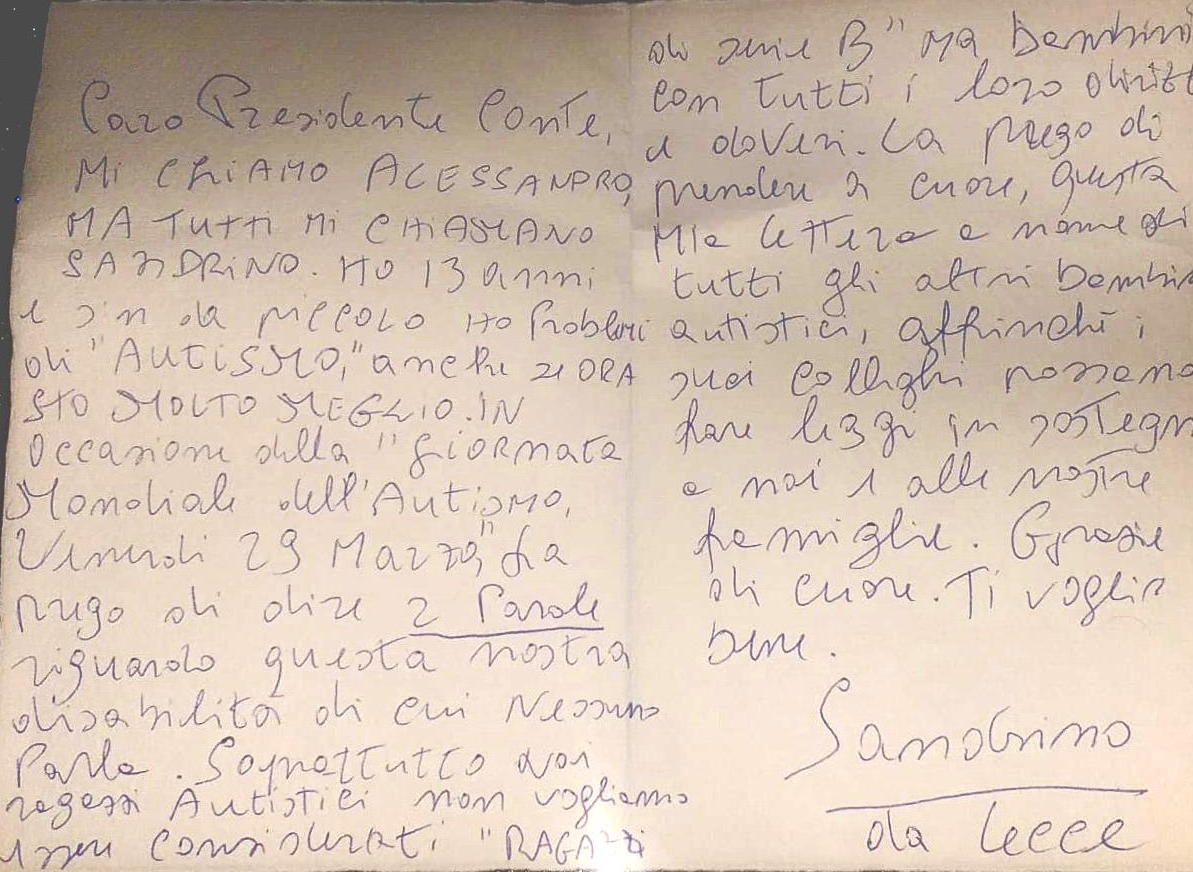 Caro Presidente Conte,
MI CHIAMO ALESSANDRO,
MA TUTTI MI CHIAMANO
SANDRINO. HO 13 anni
e sin da piccolo HO Problemi
di "AUTISMO," anche se ORA
STO MOLTO MEGLIO. IN
Occasione della "Giornata
Mondiale dell'Autismo,
Venerdì 29 Marzo," La
prego di dire 2 Parole
riguardo questa nostra
disabilità di cui Nessuno
Parla. Soprattutto noi
ragazzi Autistici non vogliamo
essere considerati "RAGAZZI
di serie B" MA bambini
con tutti i loro diritt
e doveri. La prego di
prendere a cuore, questa
Mia lettera a nome di
tutti gli altri bambin
autistici, affinché i
suoi colleghi possano
fare leggi in sostegn
a noi e alle nostre
famiglie. Grazie
di cuore. Ti voglio
bene.
Sandrino
da Lecce